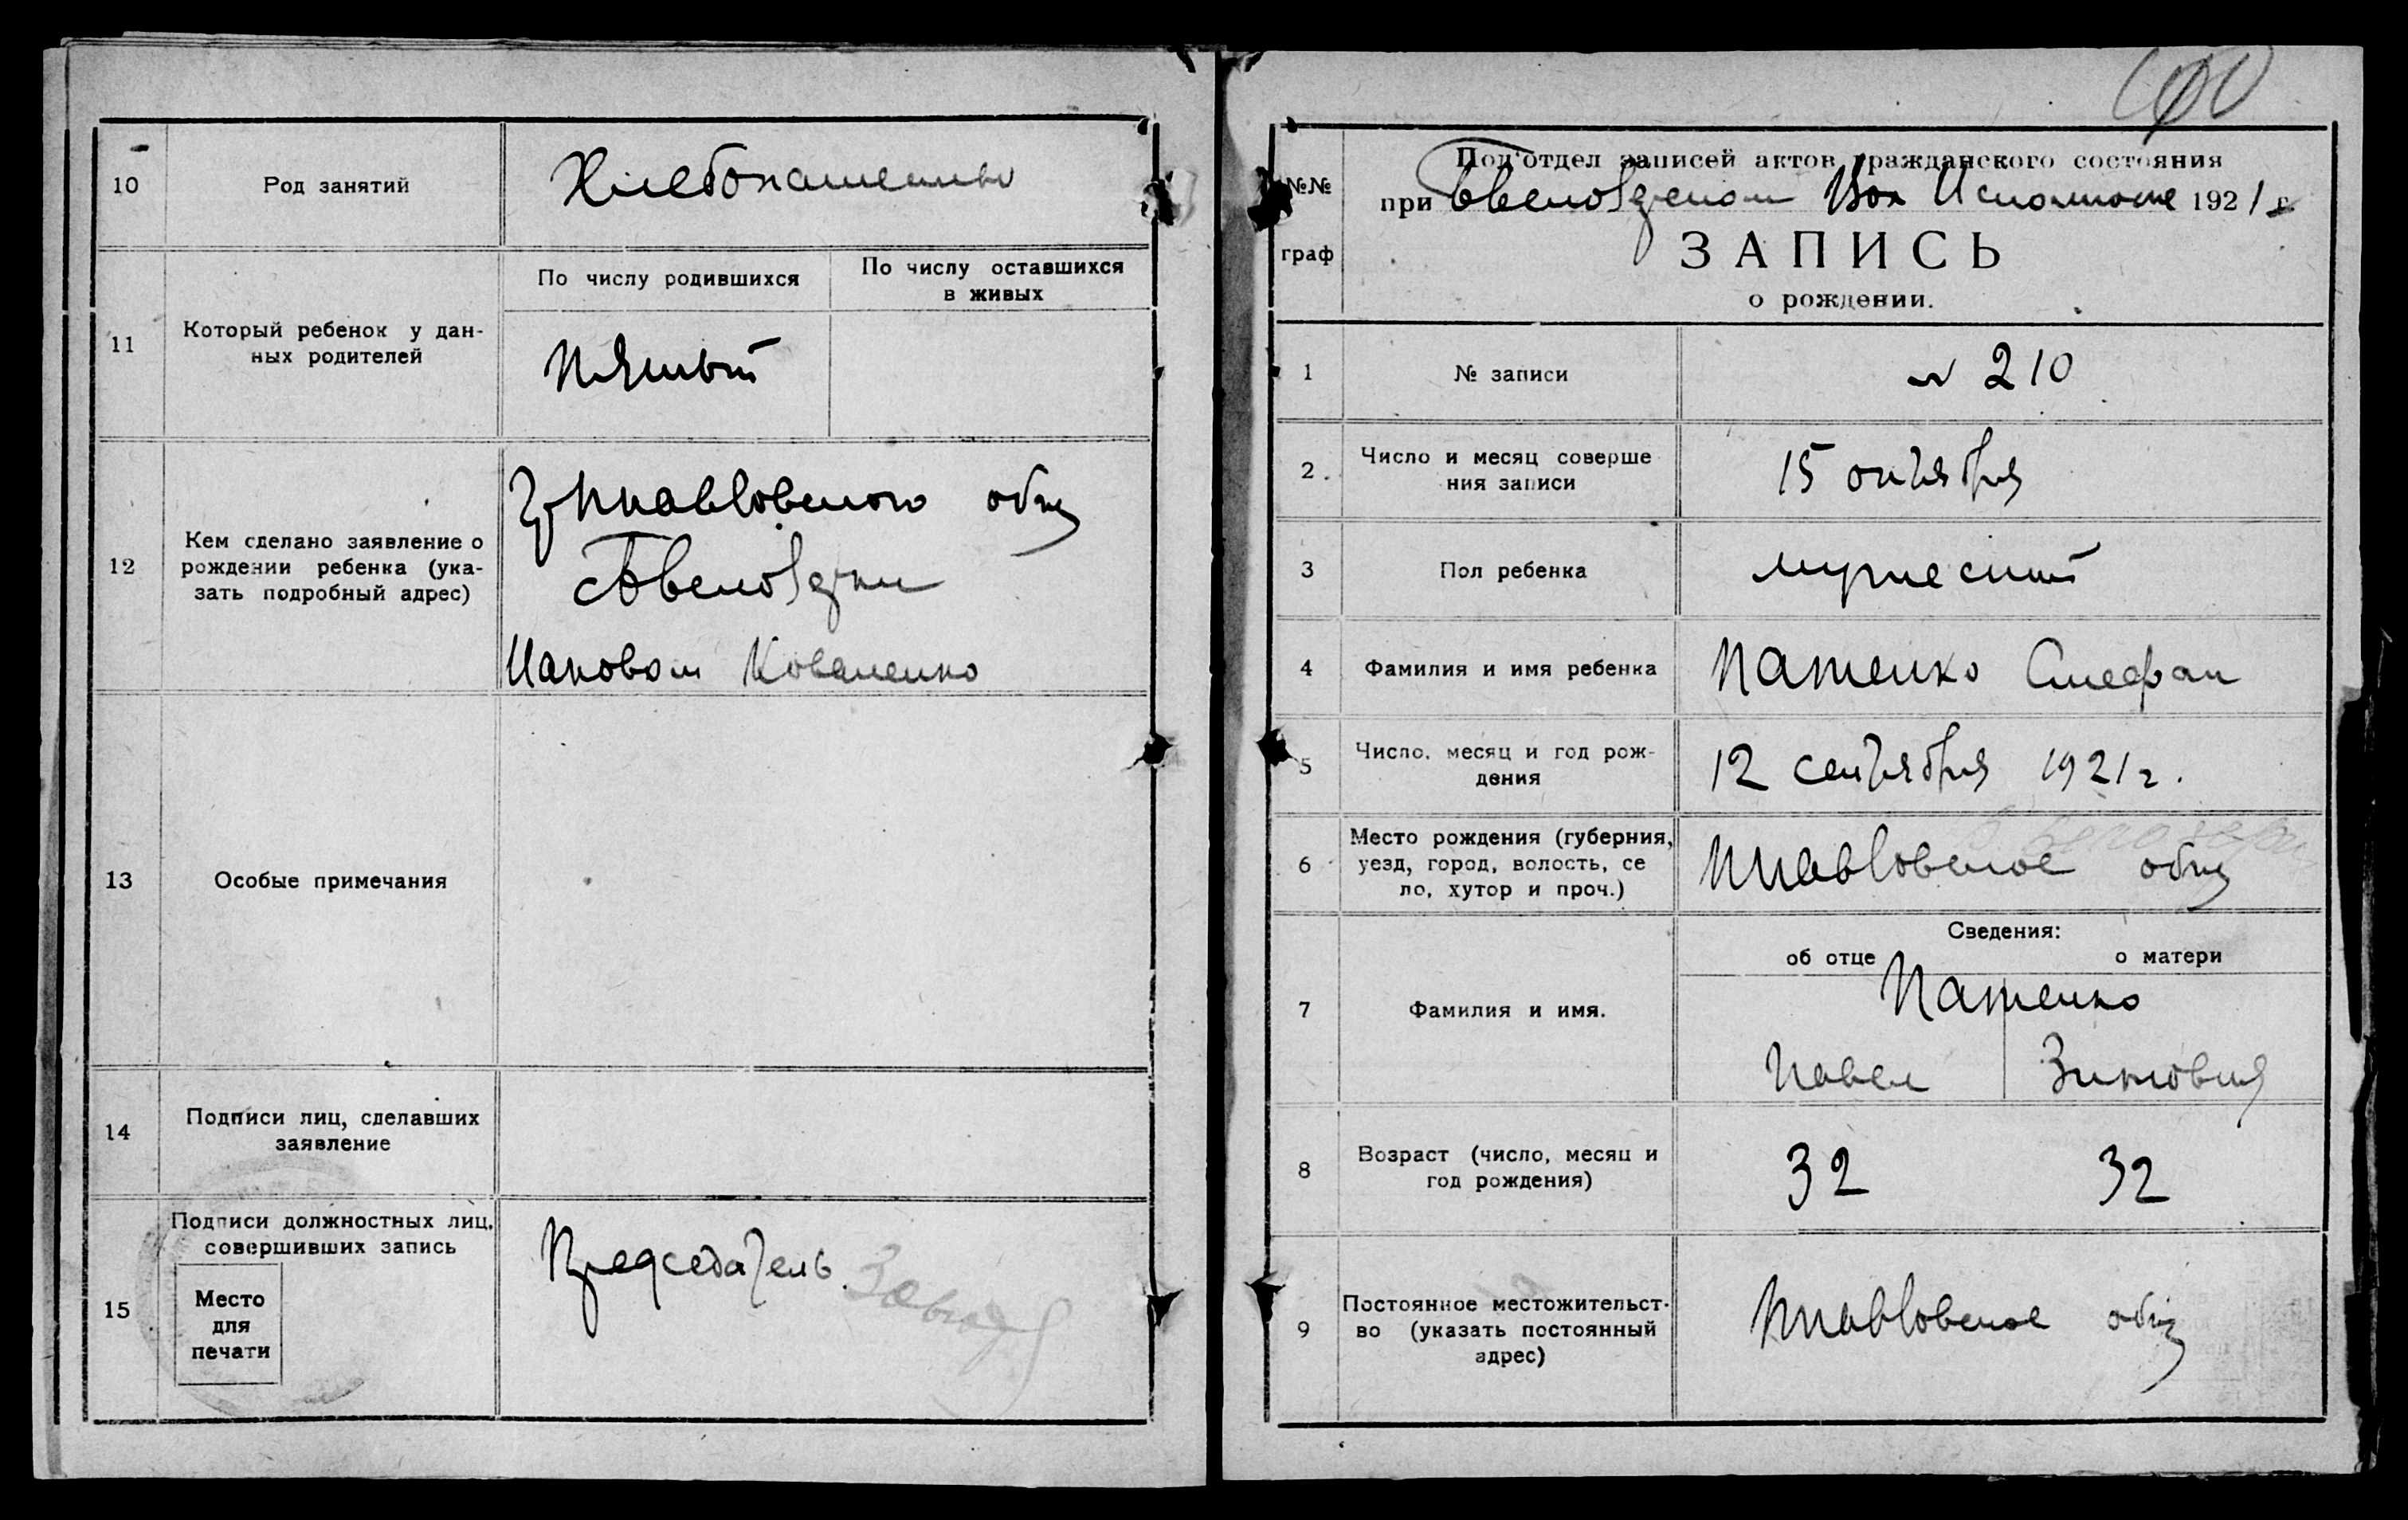 10
Род занятий
Хлебопашество
11
Который ребенок у дан-
ных родителей
По числу родившихся
По числу оставшихся
в живых
пятый
12
Кем сделано заявление о
рождении ребенка (ука-
зать подробный адрес)
общ
Коваленко
13
Особые примечания
14
Подписи лиц, сделавших
заявление
15
Подписи должностных лиц,
совершивших запись
Место
для
печати
Председатель
№№
граф
Под'отдел записей актов гражданского состояния
при Вол Исполкоме 1921 г.
ЗАПИСЬ
о рождении.
1
№ записи
№ 210
2
Число и месяц соверше
ния записи
15 октября
3
Пол ребенка
мужеский
4
Фамилия и имя ребенка
Патенко Стефан
5
Число, месяц и год рож-
дения
12 сентября 1921 г.
6
Место рождения (губерния,
уезд, город, волость, се
ло, хутор и проч.)
общ
Сведения:
об отце
о матери
7
Фамилия и имя.
Патенко
Павел
Зиновия
8
Возраст (число, месяц и
год рождения)
32
32
9
Постоянное местожительст-
во (указать постоянный
адрес)
общ